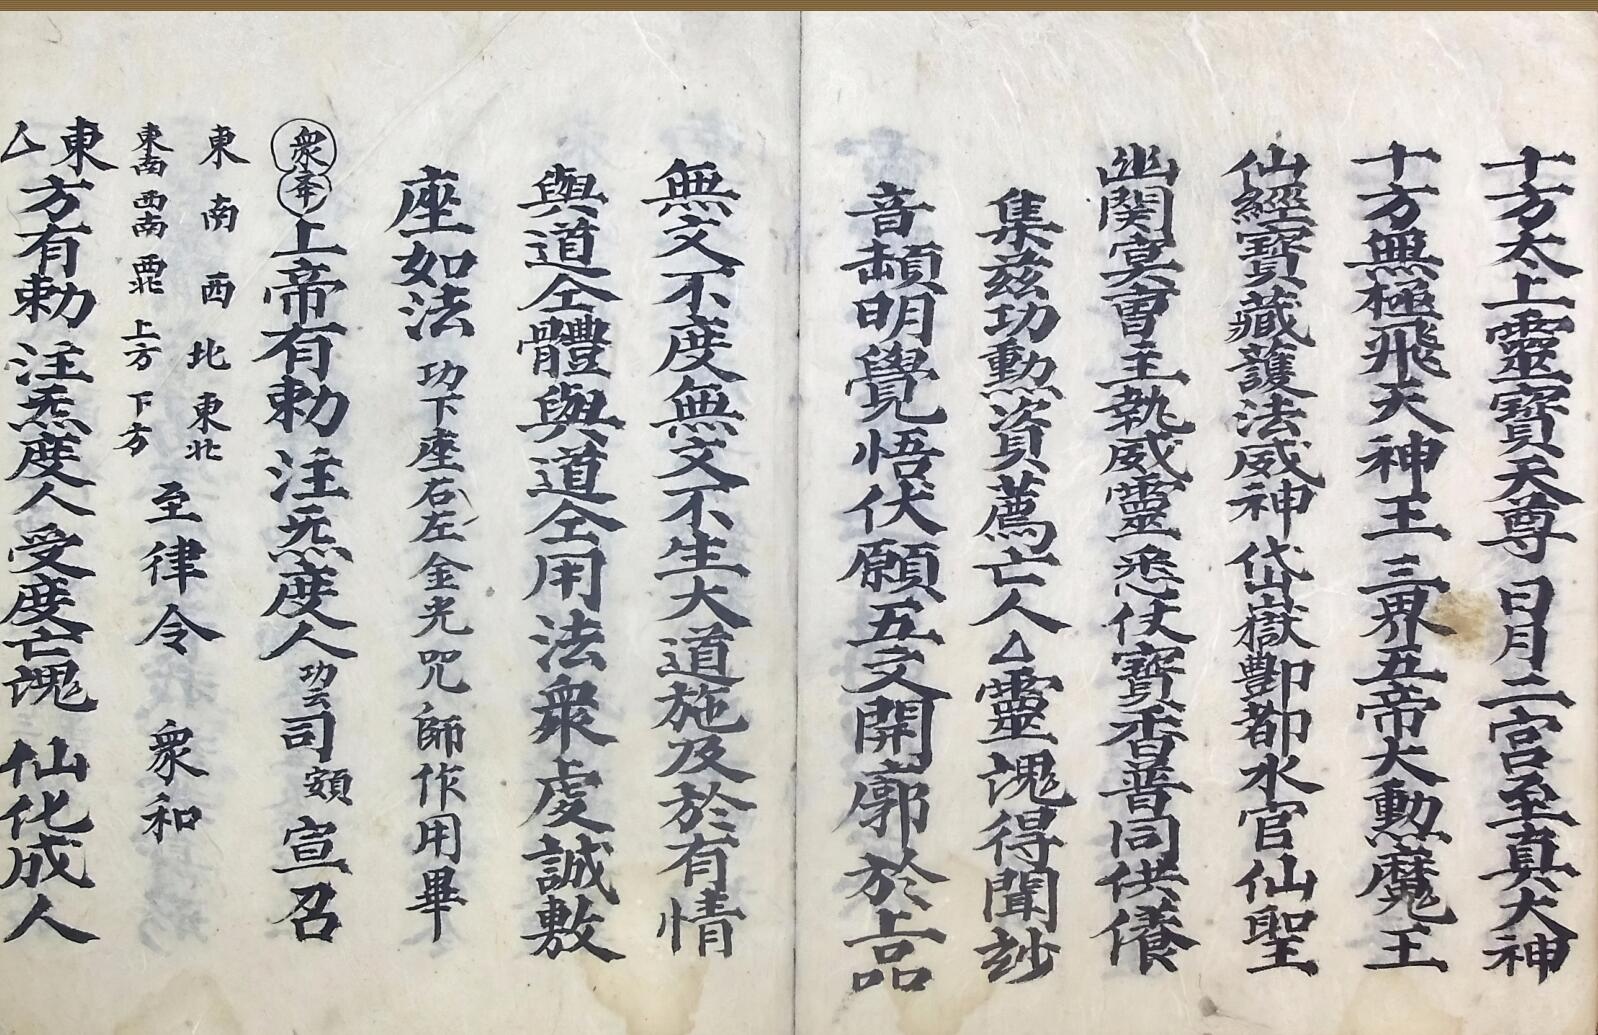 十方太上靈寶天尊 日月二宮至真大神
十方無極飛天神王 三界五帝大勳魔王
仙經寶藏護法威神 岱嶽酆都水官仙聖
幽関冥曹主執威靈 悉仗寶香普同供養
集茲功勲資薦亡人△靈魂得聞玅
音頡明覺悟伏願五文開廓於上品
無文不度無文不生大道施及於有情
與道仝體與道仝用法衆虔誠敷
座如法 功下座右左金光咒師作用畢
衆奉 上帝有勅 注炁度人 功云 司額 宣召
東 南 西 北 東北
東南 西南 西北 上方 下方 至律令 衆和
東△方有勅 注炁度人 受度亡魂 仙化成人